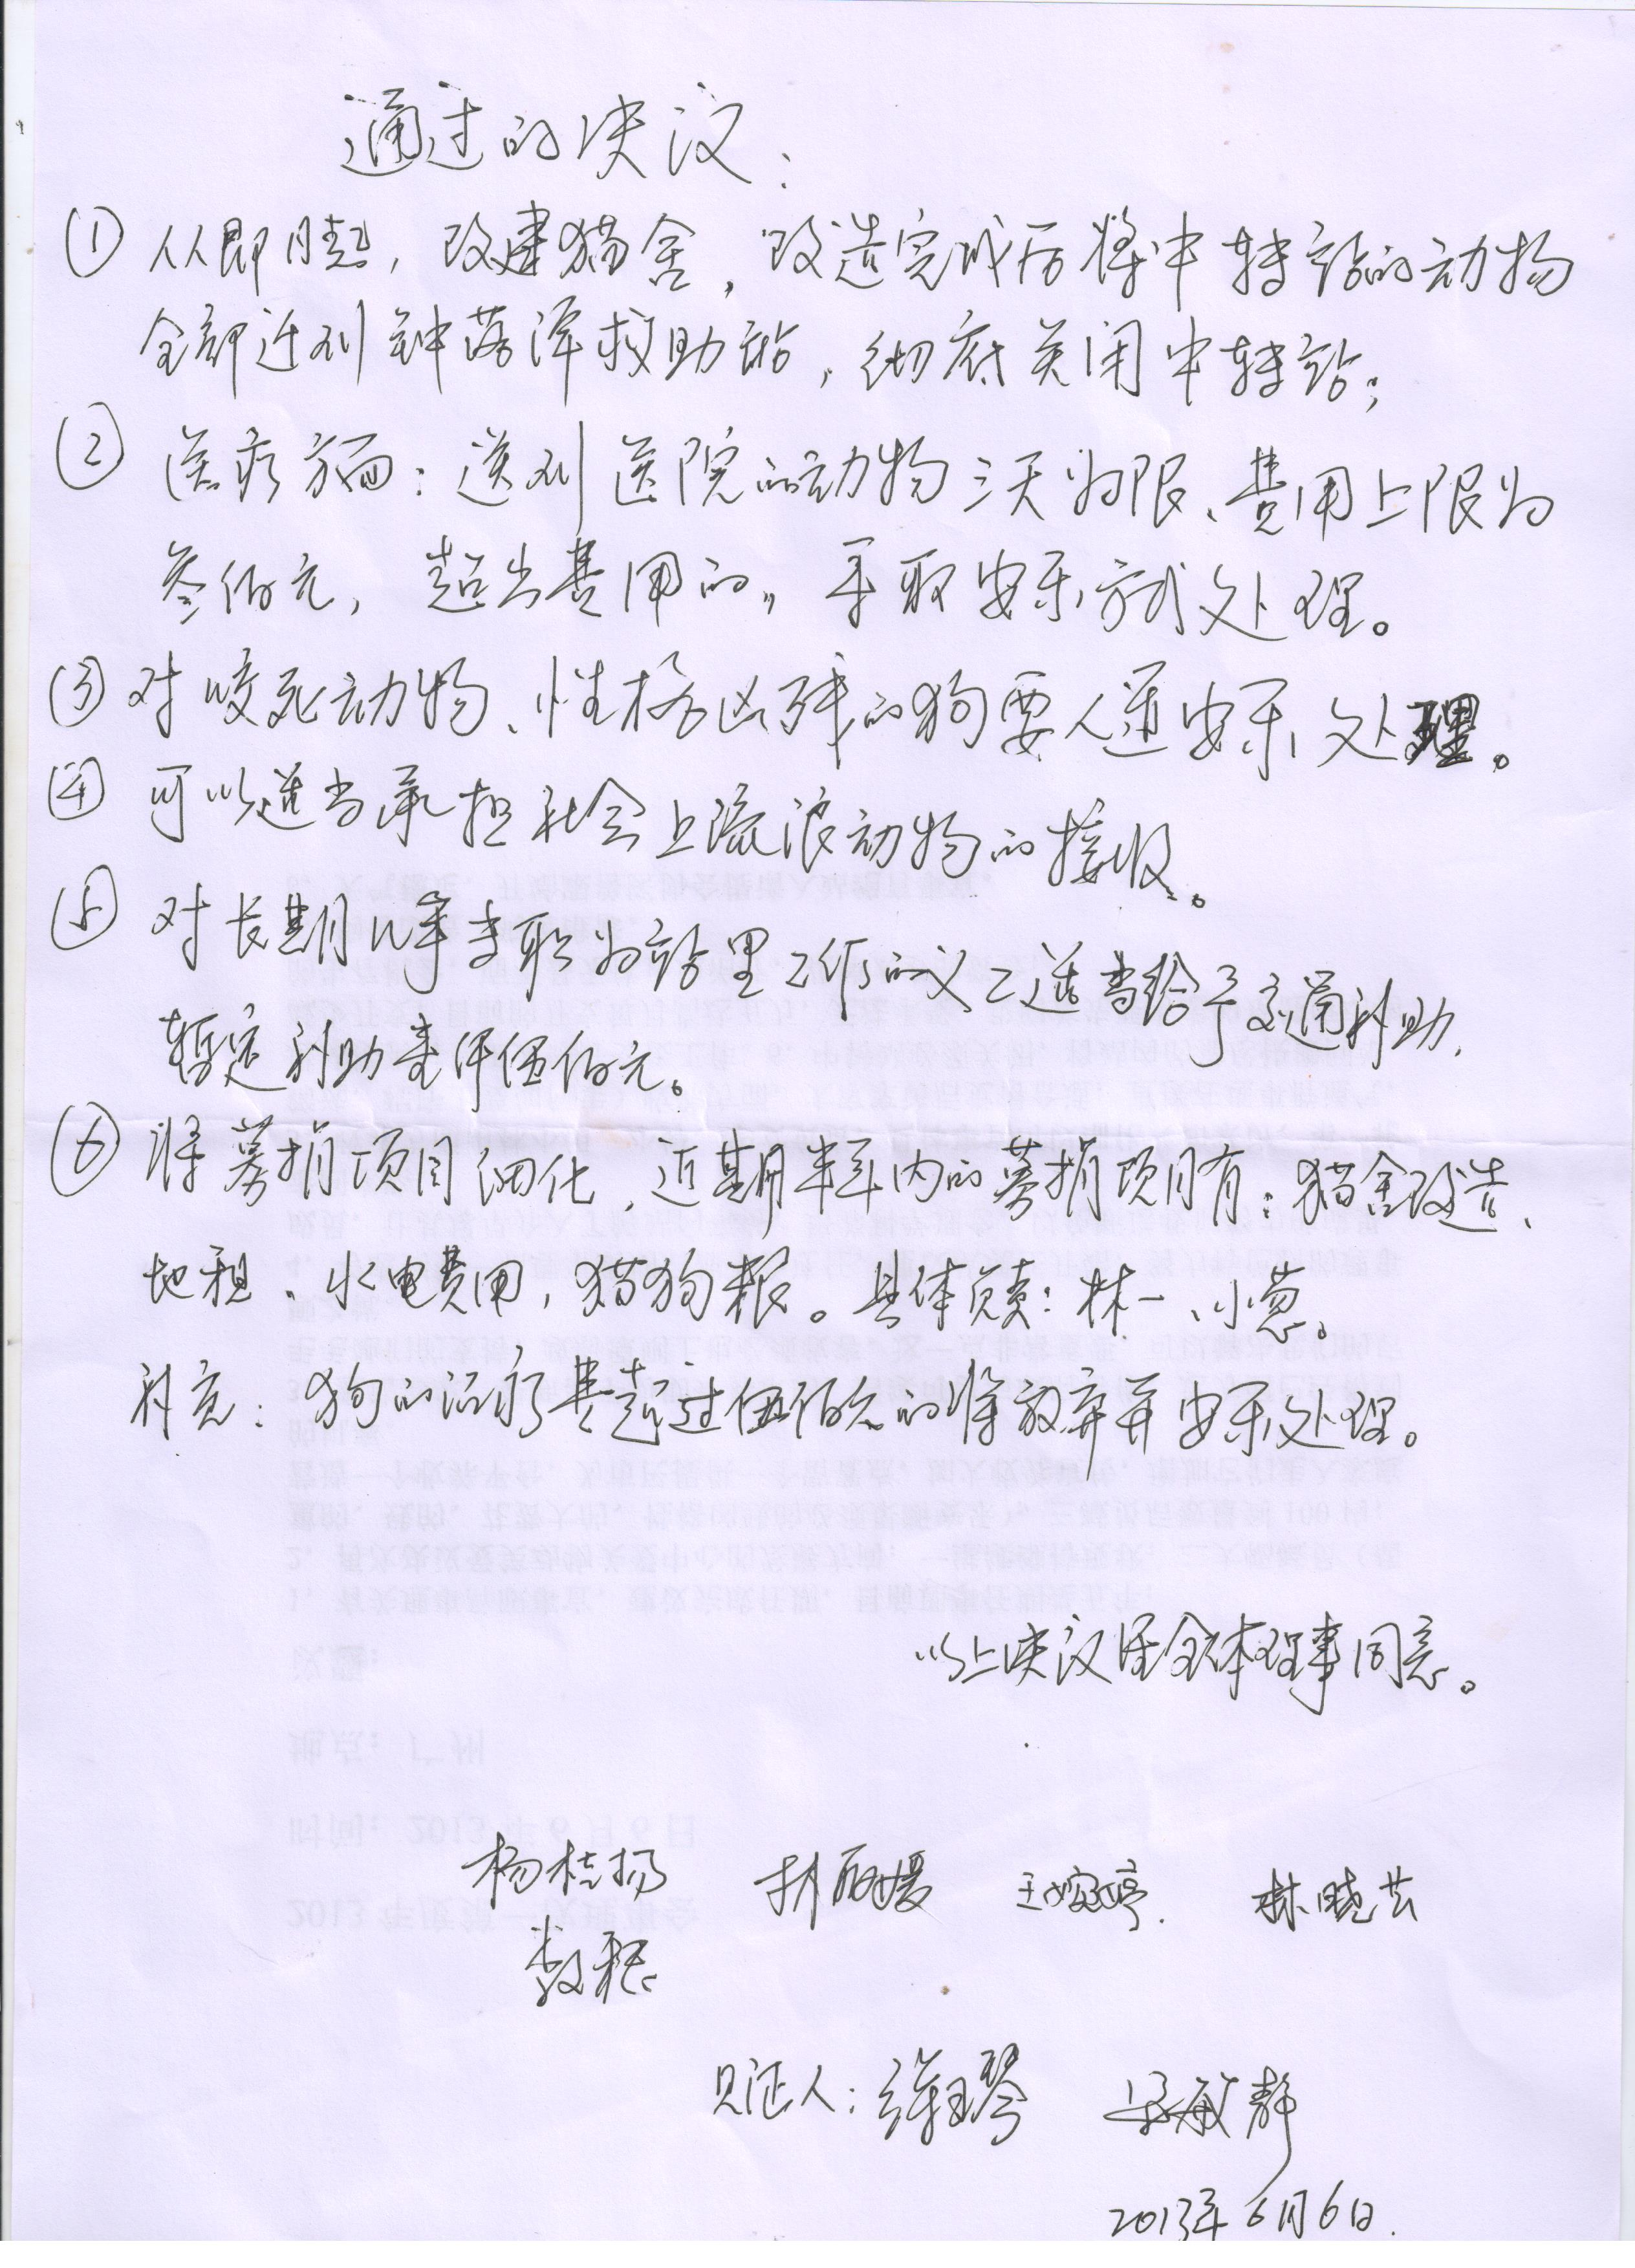 通过的决议：
① 从即日起，改建猫舍，改造完成后将中转站的动物
全部迁到钟落潭救助站，彻底关闭中转站；
② 医疗方面：送到医院的动物三天为限、费用上限为
叁佰元，超出费用的，采取安乐方式处理。
③ 对咬死动物、性格凶残的狗要人道安乐处理。
④ 可以适当承担社会上流浪动物的接收。
⑤ 对长期几年专职为站里工作的义工适当给予交通补助，
暂定补助壹仟伍佰元。
⑥ 将募捐项目细化，近期半年内的募捐项目有：猫舍改造、
地租、水电费用，猫狗粮。具体负责：林一、小葱。
补充：狗的治疗费超过伍佰元的将放弃并安乐处理。
以上决议经全体理事同意。
杨桂扬 丽媛 王婉婷 林晓芸
见证人： 琴 梁敏静
2013年6月6日
时间：2013年6月6日
地点：广州
议题：